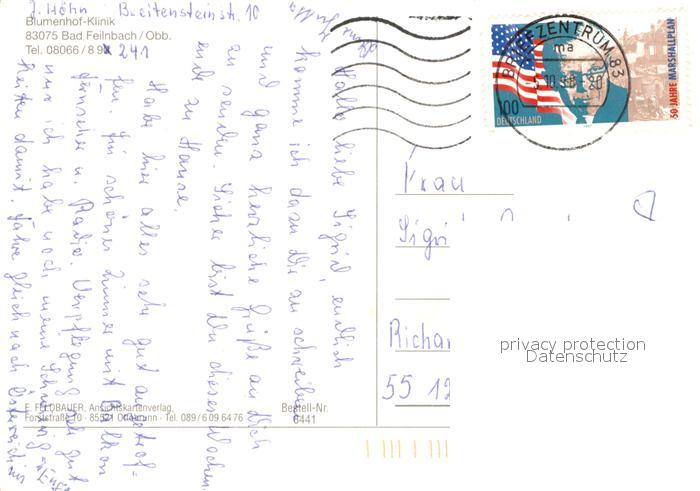 J. Höhn Breitensteinstr. 10
Blumenhof-Klinik
83075 Bad Feilnbach / Obb.
Tel. 08066 / 89 241
Hallo liebe Sigrid, endlich
komme ich dazu Dir zu schreiben
und ganz herzliche Grüße an Dich
zu senden. Sicher bist Du dieses Wochen
ende zu Hause.
Habe hier alles sehr gut angetrof-
fen. Ein schönes Zimmer mit Balkon
Fernseher u. Radio. Verpflegung sehr gut
nur ich habe noch meine
damit. gleich nach Österreich
E. FELDBAUER, Ansichtskartenverlag,
Forststraße 10 · 85521 Ottobrunn · Tel. 089/6 09 64 76
Bestell-Nr.
6441
BRIEFZENTRUM 83
ma
100
DEUTSCHLAND
50 JAHRE MARSHALLPLAN
Frau
Sigri
Richar
55 12
privacy protection
Datenschutz